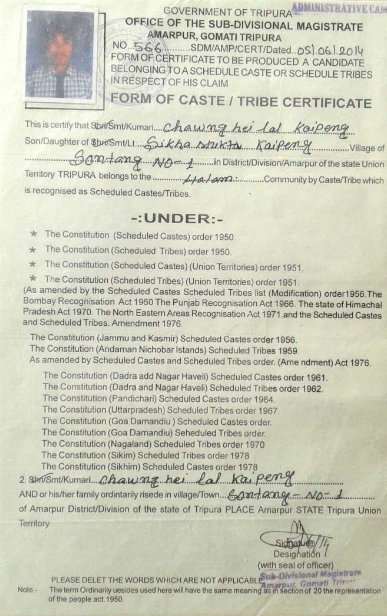 GOVERNMENT OF TRIPURA
ADMINISTRATIVE CAM
OFFICE OF THE SUB-DIVISIONAL MAGISTRATE
AMARPUR, GOMATI TRIPURA
NO. 566 SDM/AMP/CERT/Dated. 05/06/2014
FORM OF CERTIFICATE TO BE PRODUCED A CANDIDATE
BELONGING TO A SCHEDULE CASTE OR SCHEDULE TRIBES
IN RESPECT OF HIS CLAIM
FORM OF CASTE / TRIBE CERTIFICATE
This is certify that Shri/Smt/Kumari. Chawng hei lal Kaipeng
Son/Daughter of Shri/Smt/Lt. Sikha Kaipeng Village of
Sontang NO-1 in District/Division/Amarpur of the state Union
Territory TRIPURA belongs to the Halam Community by Caste/Tribe which
is recognised as Scheduled Castes/Tribes.
-:UNDER:-
* The Constitution (Scheduled Castes) order 1950.
* The Constitution (Scheduled Tribes) order 1950.
* The Constitution (Scheduled Castes) (Union Territories) order 1951.
* The Constitution (Scheduled Tribes) (Union Territories) order 1951.
(As amended by the Scheduled Castes Scheduled Tribes list (Modification) order1956.The
Bombay Recognisation Act 1960 The Punjab Recognisation Act 1966. The state of Himachal
Pradesh Act 1970. The North Eastern Areas Recognisation Act 1971.and the Scheduled Castes
and Scheduled Tribes. Amendment 1976.
The Constitution (Jammu and Kasmir) Scheduled Castes order 1956.
The Constitution (Andaman Nichobar Islands) Scheduled Tribes 1959.
As amended by Scheduled Castes and Scheduled Tribes order. (Ame ndment) Act 1976.
The Constitution (Dadra add Nagar Haveli) Scheduled Castes order 1961.
The Constitution (Dadra and Nagar Haveli) Scheduled Tribes order 1962.
The Constitution (Pandichari) Scheduled Castes order 1964.
The Constitution (Uttarpradesh) Scheduled Tribes order 1967
The Constitution (Goa Damandiu ) Scheduled Castes order.
The Constitution (Goa Damandiu) Seheduled Tribes order.
The Constitution (Nagaland) Scheduled Tribes order 1970
The Constitution (Sikim) Scheduled Tribes order 1978
The Constitution (Sikhim) Scheduled Castes order 1978
2. Shri/Smt/Kumari. Chawng hei lal Kaipeng
AND or his/her family ordintarily risede in village/Town. Sontang-NO-1
of Amarpur District/Division of the state of Tripura PLACE Amarpur STATE Tripura Union
Territory.
Signature
Designation
(with seal of officer)
Sub-Divisional Magistrate
Amarpur, Gomati Tripura
PLEASE DELET THE WORDS WHICH ARE NOT APPLICABLE
Note :- The term Ordinarily uesides used here will have the same meaning as in section of 20 the representation
of the people act.1950.